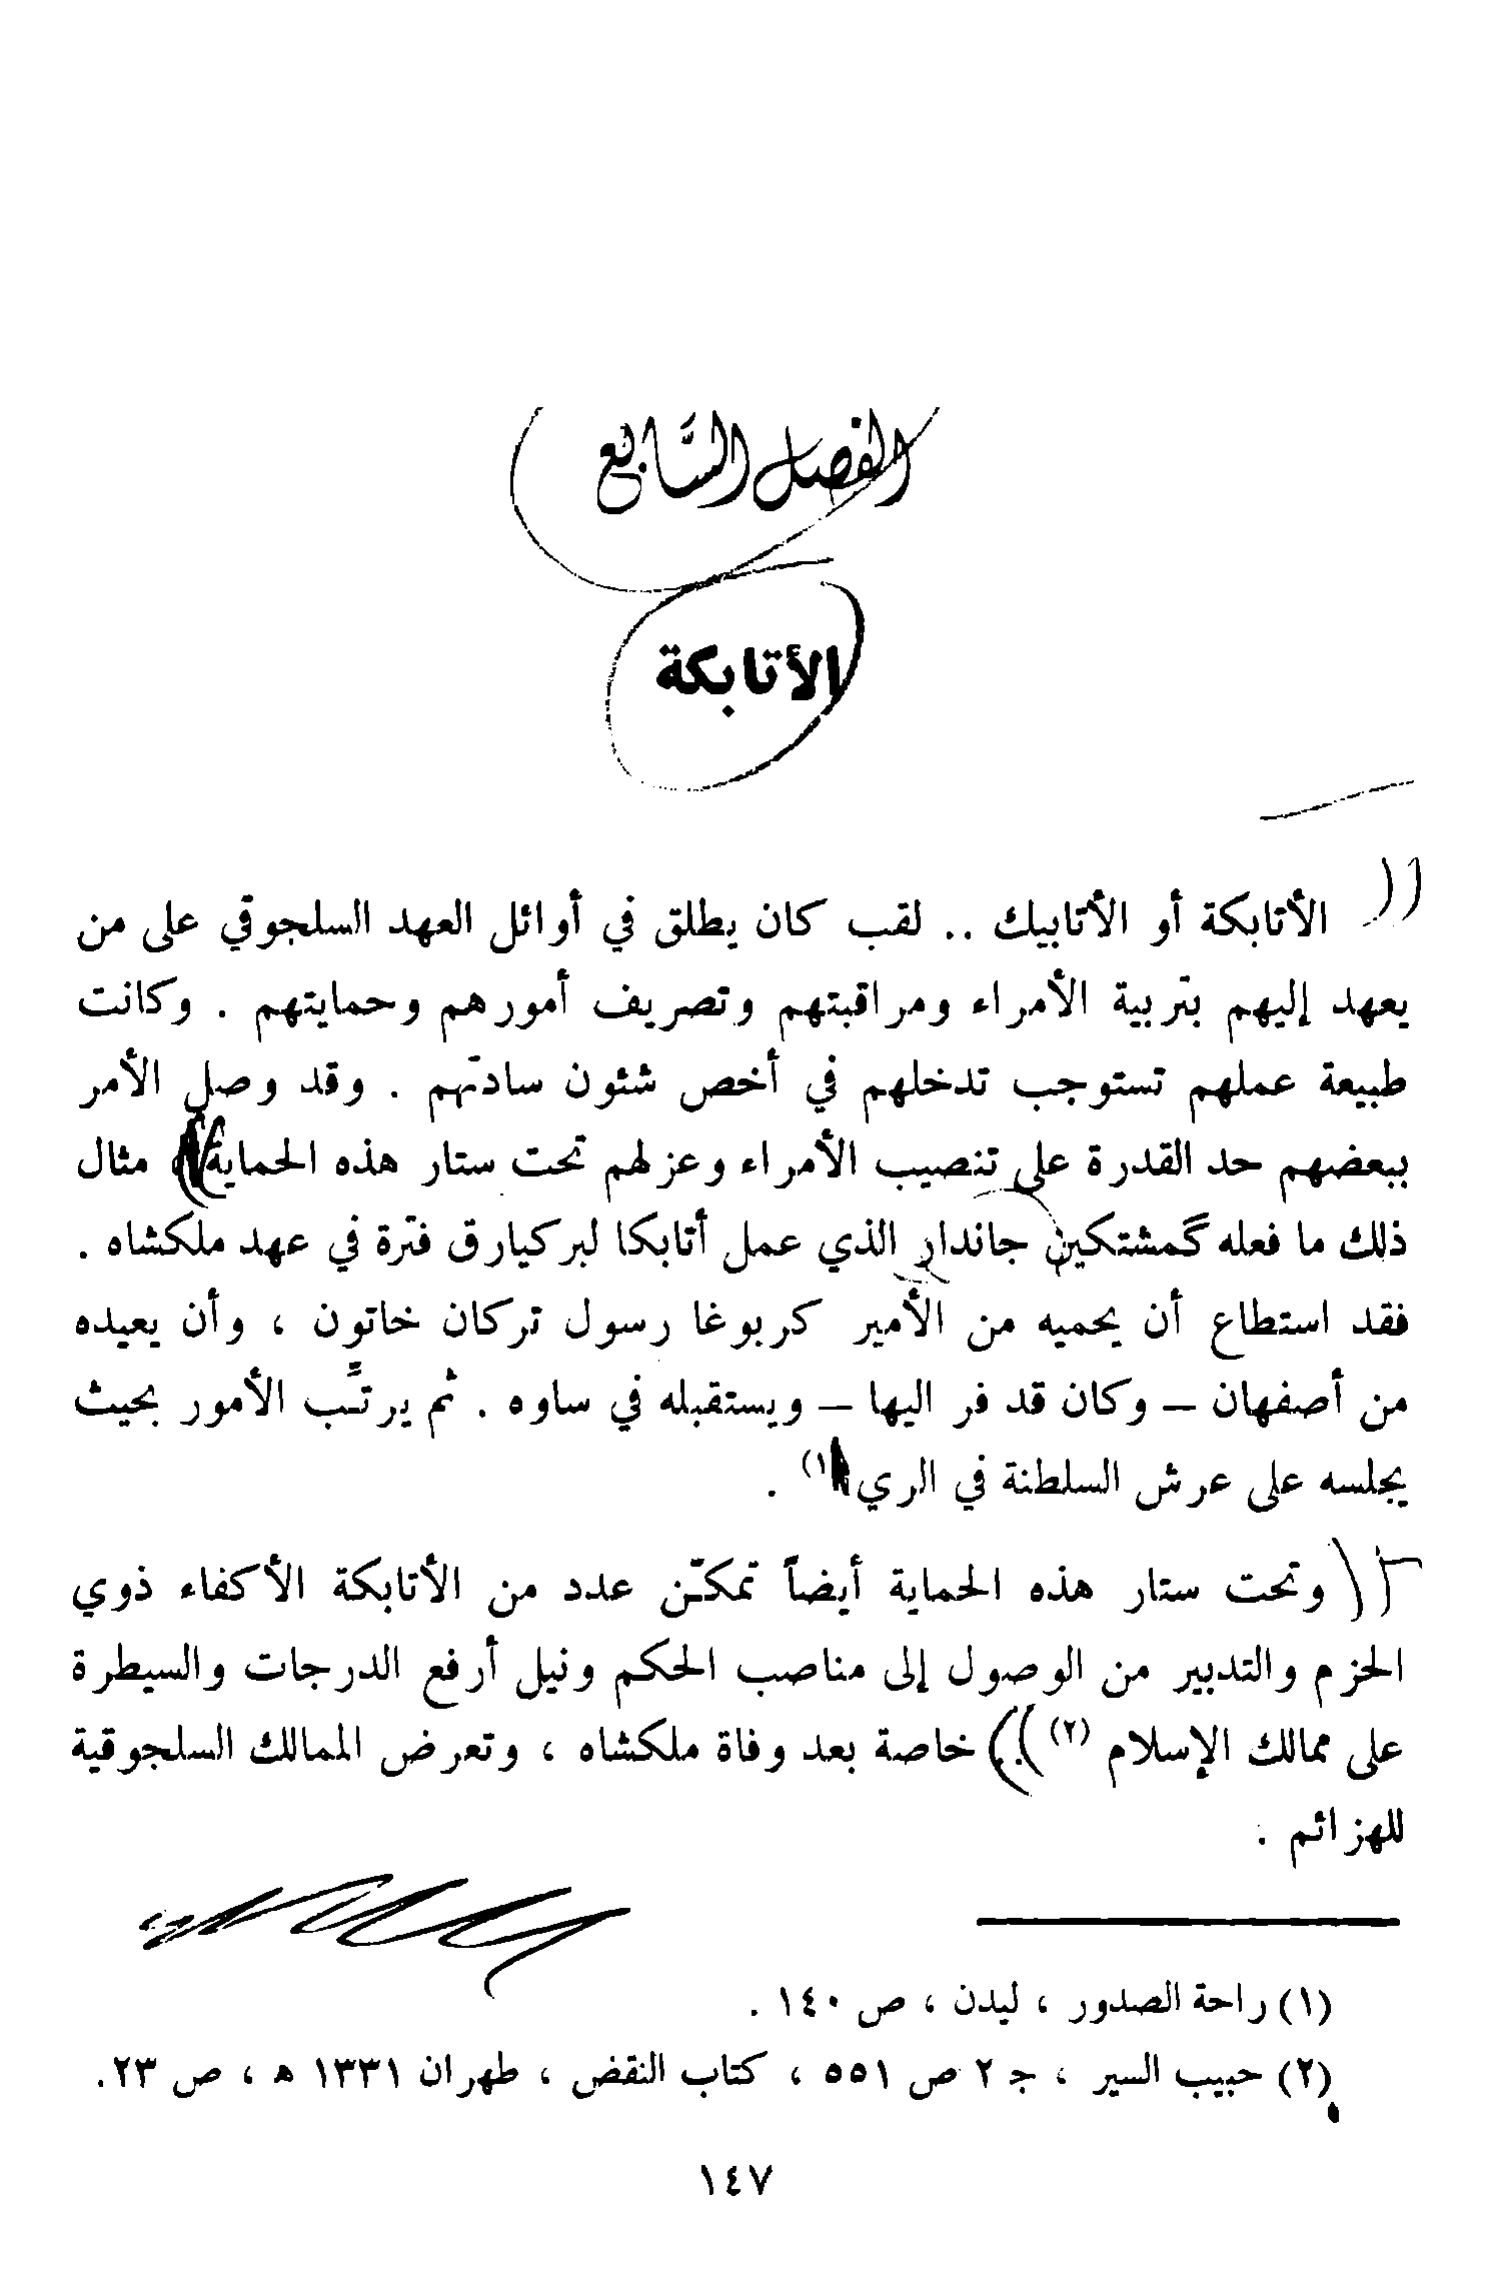 الفصل السَّابع
الأتابكة
الأتابكة أو الأتابيك .. لقب كان يطلق في أوائل العهد السلجوقي على من
يعهد إليهم بتربية الأمراء ومراقبتهم وتصريف أمورهم وحمايتهم . وكانت
طبيعة عملهم تستوجب تدخلهم في أخص شئون سادتهم . وقد وصل الأمر
ببعضهم حد القدرة على تنصيب الأمراء وعزلهم تحت ستار هذه الحماية ، مثال
ذلك ما فعله گمشتكين جاندار الذي عمل أتابكا لبركيارق فترة في عهد ملكشاه .
فقد استطاع أن يحميه من الأمير كربوغا رسول تركان خاتون ، وأن يعيده
من أصفهان – وكان قد فر اليها – ويستقبله في ساوه . ثم يرتِّب الأمور بحيث
يجلسه على عرش السلطنة في الري (١) .
وتحت ستار هذه الحماية أيضاً تمكّن عدد من الأتابكة الأكفاء ذوي
الحزم والتدبير من الوصول إلى مناصب الحكم ونيل أرفع الدرجات والسيطرة
على ممالك الإسلام (٢) .. خاصة بعد وفاة ملكشاه ، وتعرض الممالك السلجوقية
للهزائم .
(١) راحة الصدور ، ليدن ، ص ١٤٠ .
(٢) حبيب السير ، جـ ٢ ص ٥٥١ ، كتاب النقض ، طهران ١٣٣١ ه ، ص ٢٣.
١٤٧